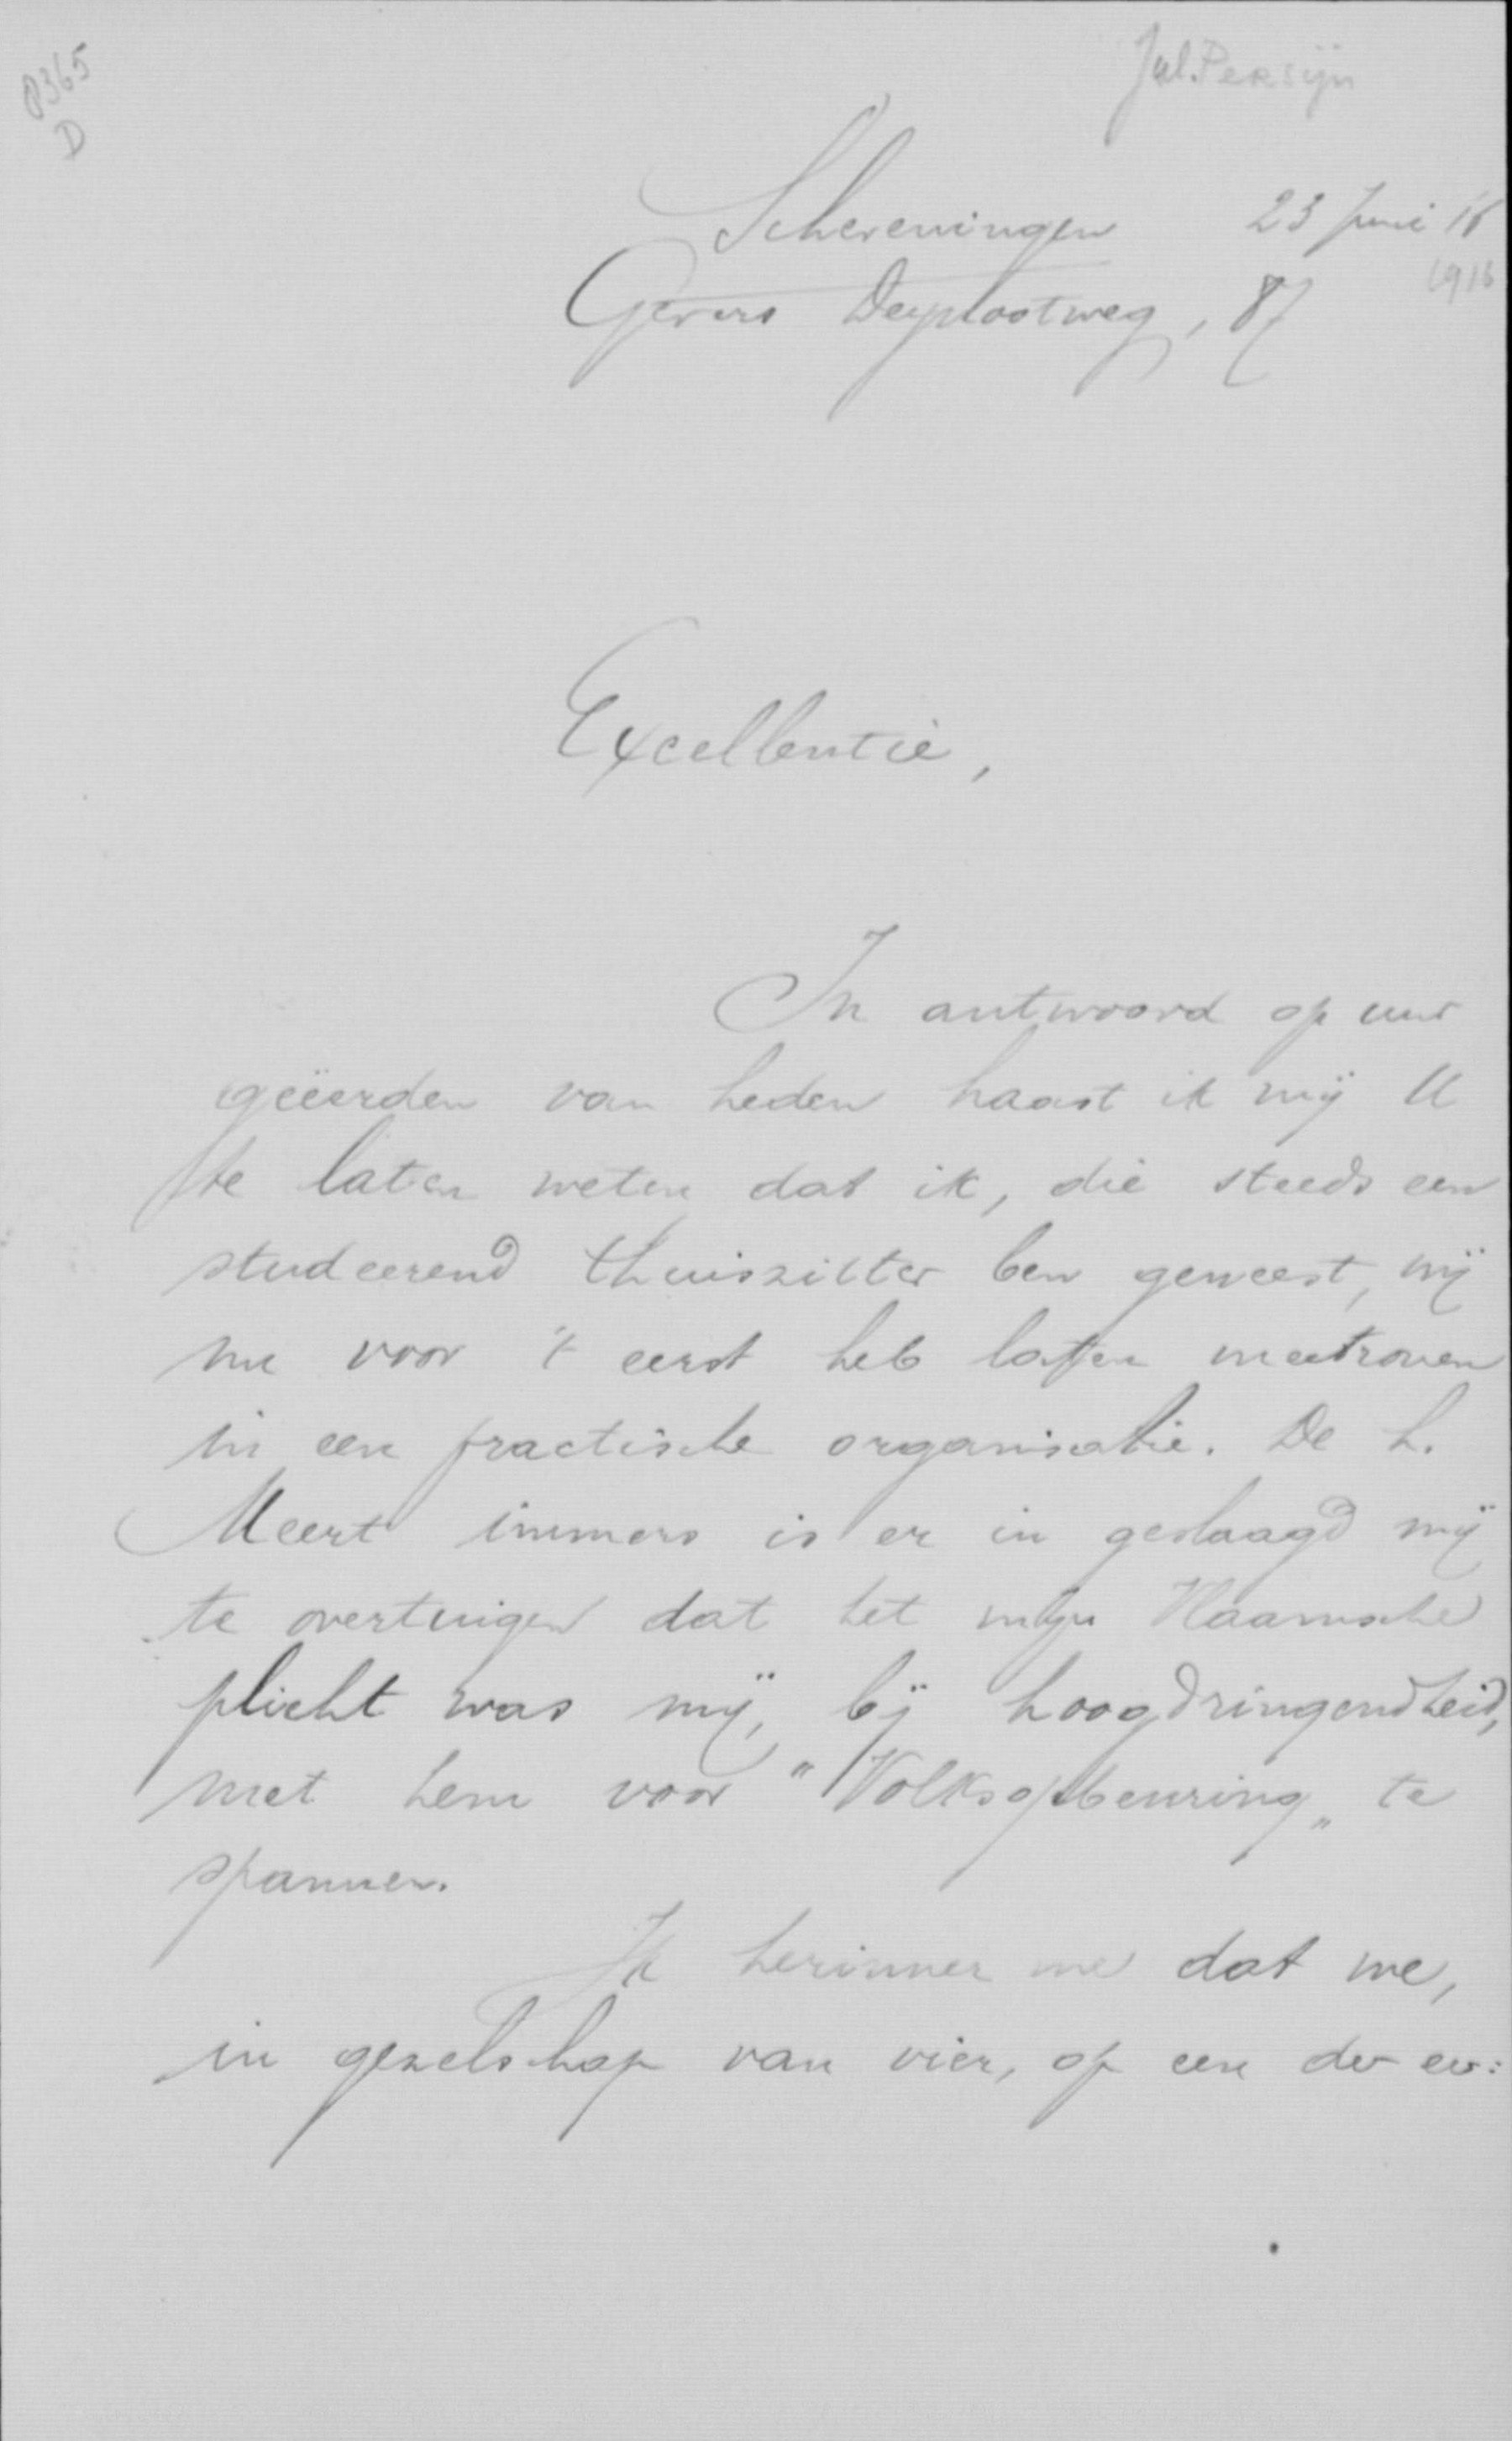 P365
D
Jul. Persijn
Scheveningen 23 Juni 16
1916
Gevers Deynootweg, 87
Excellentie,
In antwoord op uw
geëerden van heden haast ik mij U
te laten weten dat ik, die steeds een
studeerend thuiszitter ben geweest, mij
nu voor 't eerst heb laten meetronen
in een practische organisatie. De h.
Meert immers is er in geslaagd mij
te overtuigen dat het mijn Vlaamsche
plicht was mij, bij hoogdringendheid,
met hem voor "Volksopbeuring„ te
spannen.
Ik herinner me dat we,
in gezelschap van vier, op een der eer: